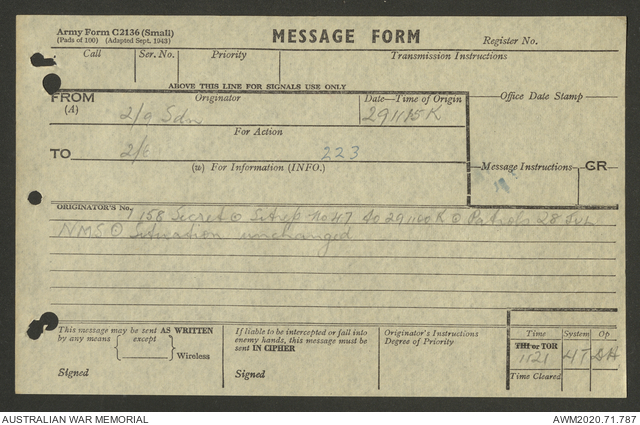 Army Form C2136 (Small)
(Pads of 100) (Adapted Sept. 1943)
MESSAGE FORM
Register No.
Call
Ser. No.
Priority
Transmission Instructions
ABOVE THIS LINE FOR SIGNALS USE ONLY
FROM
(A)
Originator
Date—Time of Origin
Office Date Stamp
2/9
291115K
For Action
TO
2/
223
(w) For Information (INFO.)
Message Instructions
GR
ORIGINATOR'S No.
158 Secret ⊙ Sitrep No 47 to 291100K ⊙ Patrols 28 Jul
NMS ⊙ Situation unchanged
This message may be sent AS WRITTEN
by any means { except } Wireless
Signed
If liable to be intercepted or fall into
enemy hands, this message must be
sent IN CIPHER
Signed
Originator's Instructions
Degree of Priority
Time
System
Op
THI or TOR
1121
4T
DH
Time Cleared
AUSTRALIAN WAR MEMORIAL
AWM2020.71.787